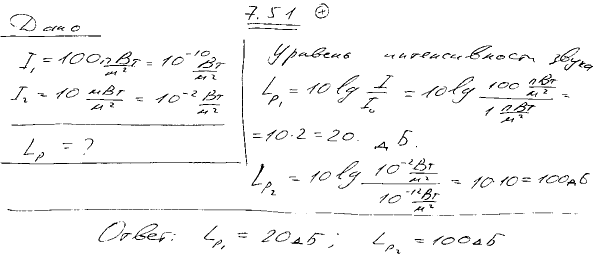 7.51 ⊕
Дано
I₁ = 100 пВт/м² = 10⁻¹⁰ Вт/м²
I₂ = 10 мВт/м² = 10⁻² Вт/м²
Lₚ = ?
Уровень интенсивности звука
Lₚ₁ = 10 lg I/I₀ = 10 lg (100 пВт/м²)/(1 пВт/м²) =
= 10·2 = 20. дБ.
Lₚ₂ = 10 lg (10⁻² Вт/м²)/(10⁻¹² Вт/м²) = 10·10 = 100 дБ
Ответ: Lₚ₁ = 20 дБ; Lₚ₂ = 100 дБ